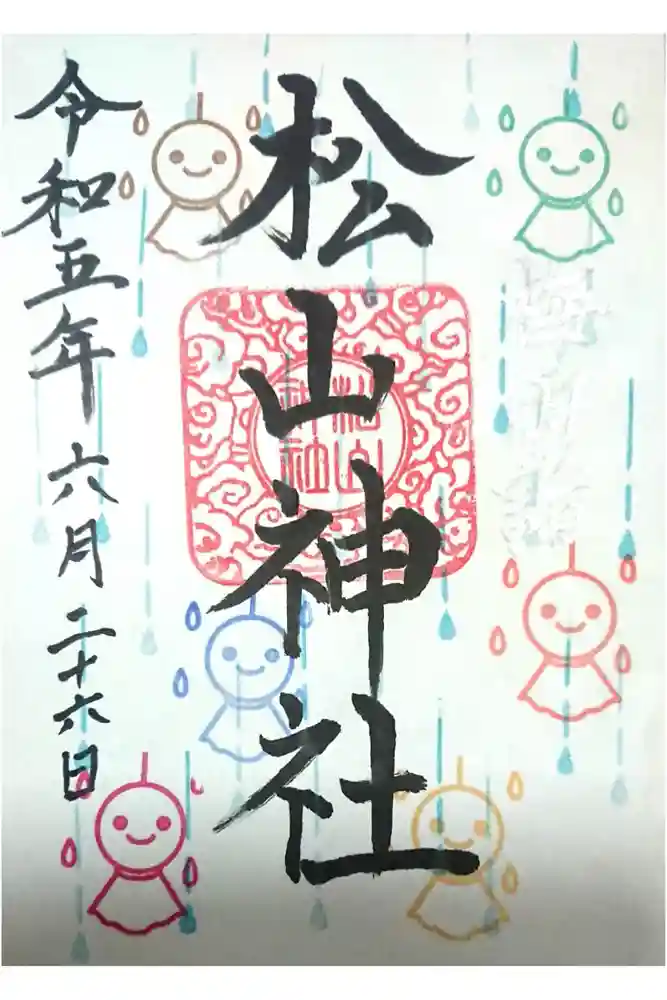 松山神社
松山
神社
令和五年六月二十六日